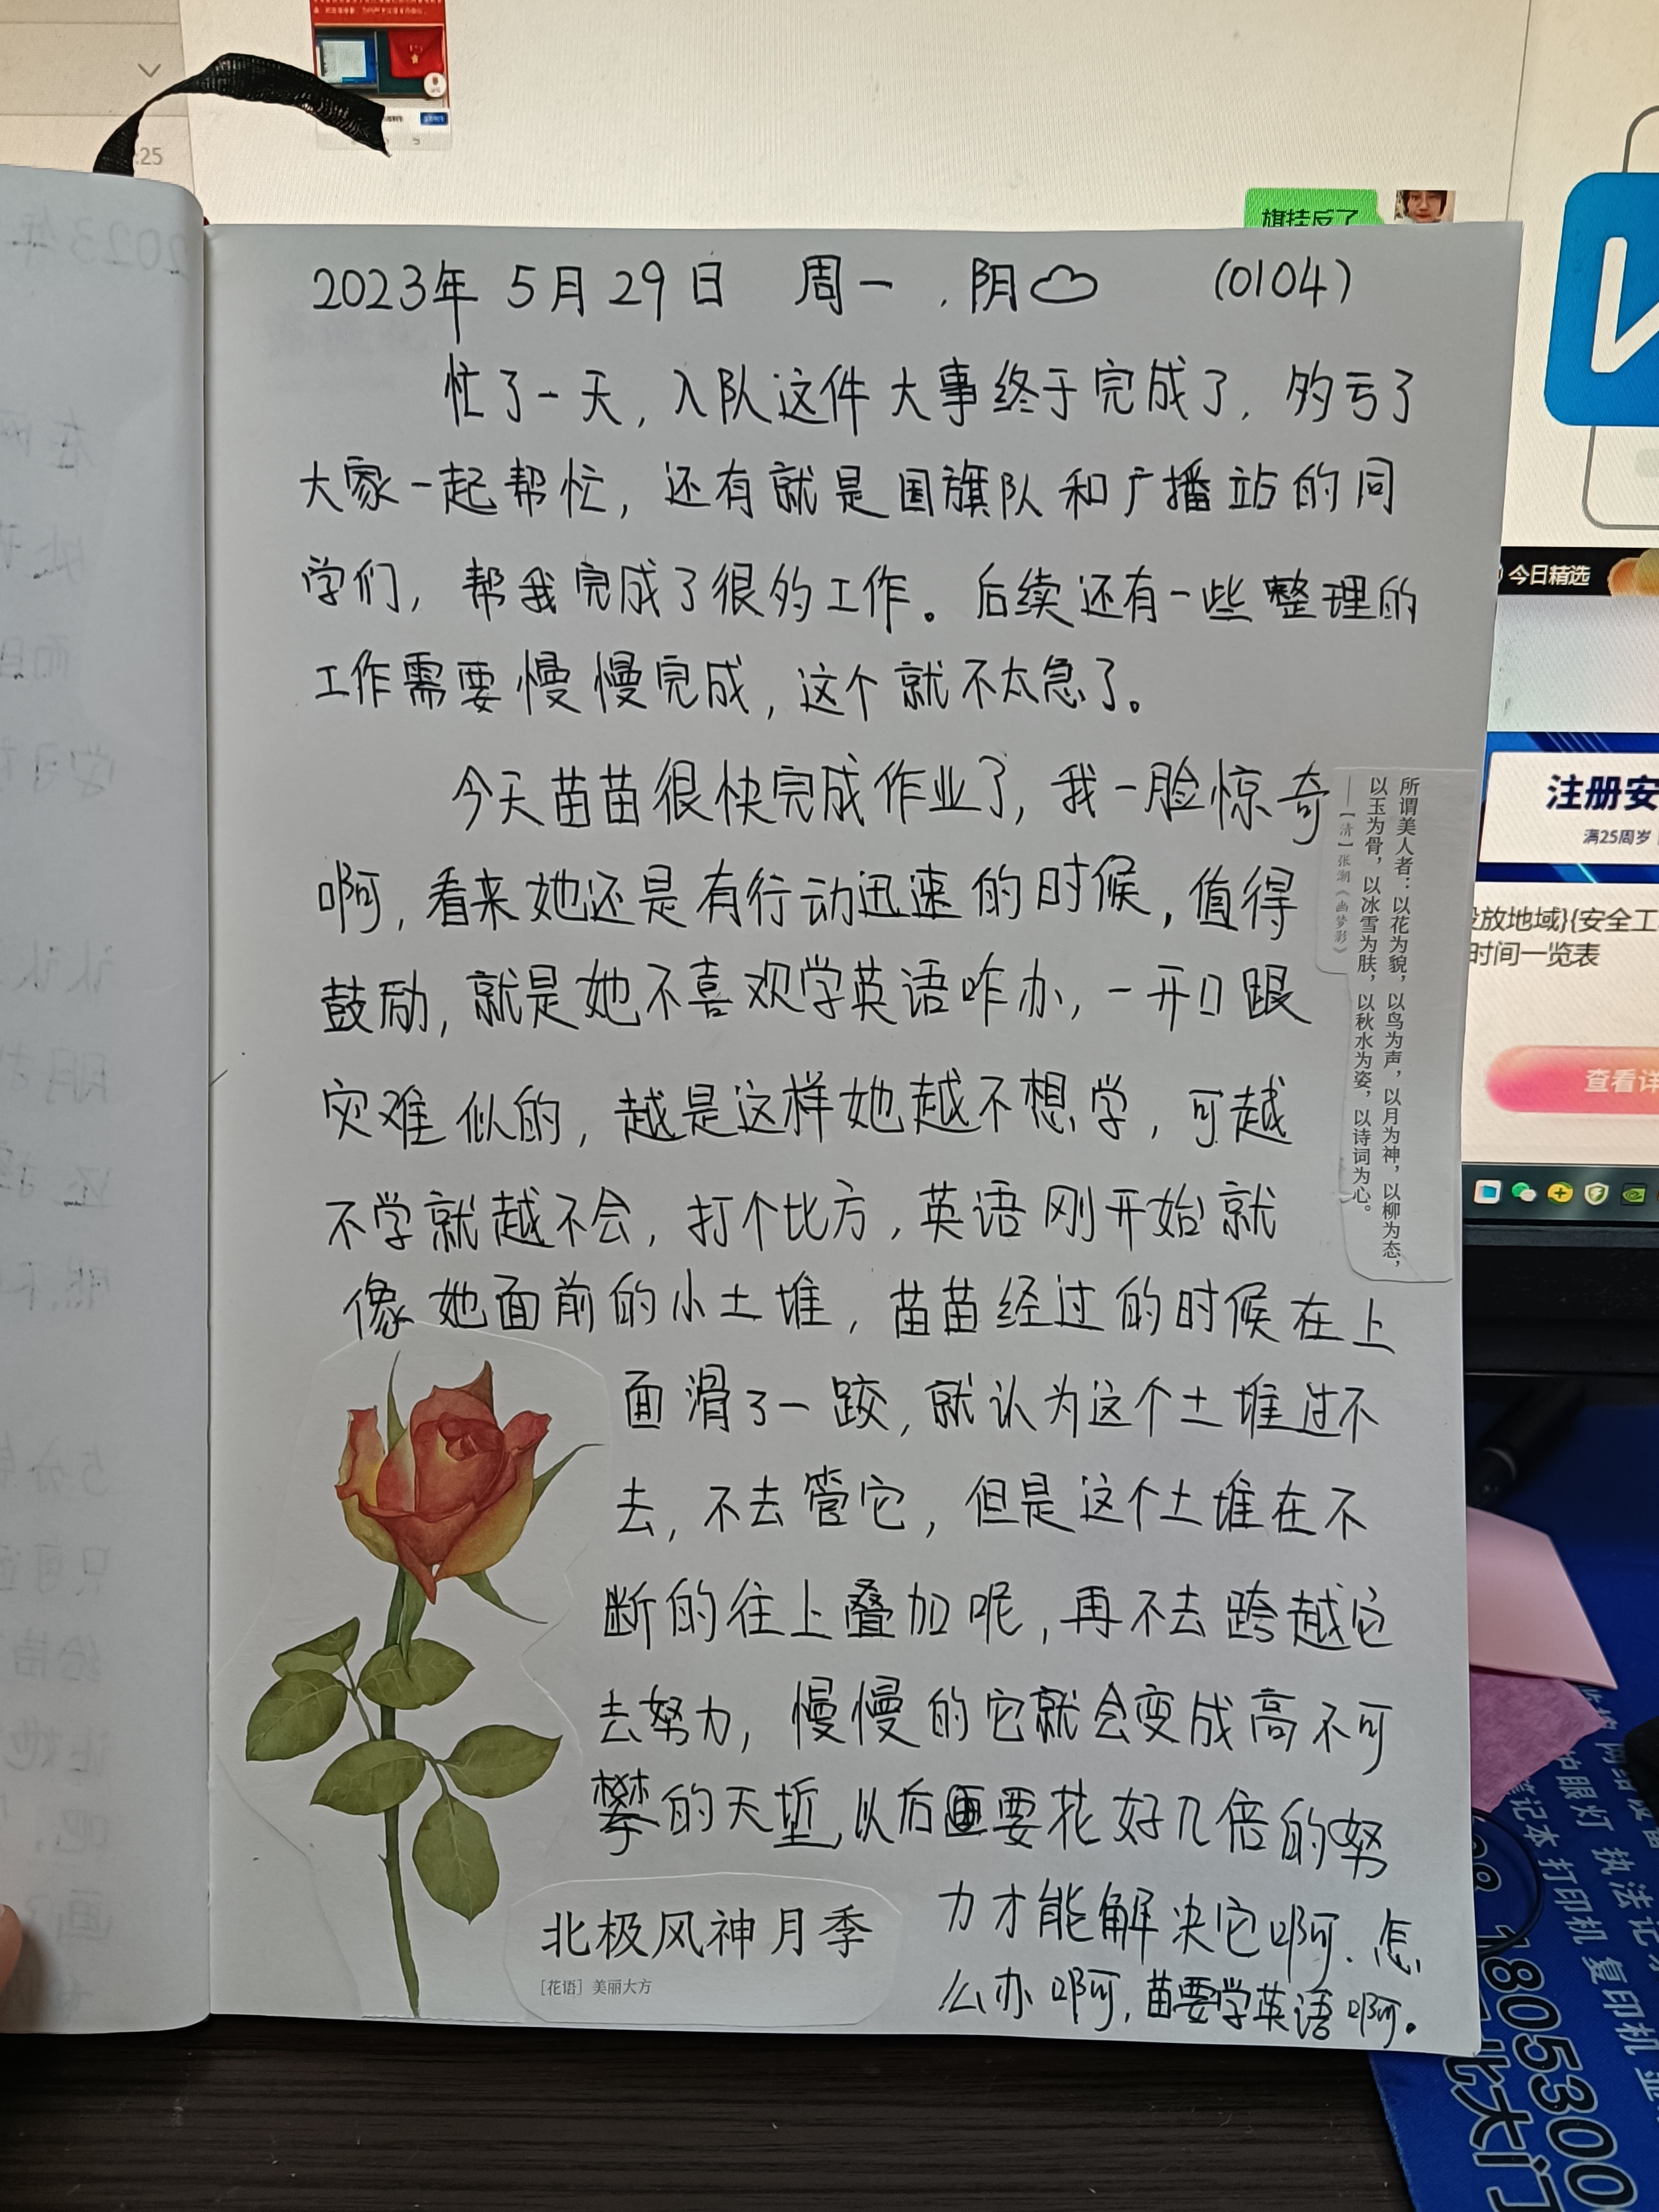 旗挂反了
2023年 5月 29日 周一 . 阴 (0104)
忙了一天, 入队这件大事终于完成了, 多亏了
大家一起帮忙, 还有就是国旗队和广播站的同
学们, 帮我完成了很多工作。后续还有一些整理的
工作需要慢慢完成, 这个就不太急了。
今天苗苗很快完成作业了, 我一脸惊奇
啊, 看来她还是有行动迅速的时候, 值得
鼓励, 就是她不喜欢学英语咋办, 一开口跟
灾难似的, 越是这样她越不想学, 可越
不学就越不会, 打个比方, 英语刚开始就
像她面前的小土堆, 苗苗经过的时候在上
面滑了一跤, 就认为这个土堆过不
去, 不去管它, 但是这个土堆在不
断的往上叠加呢, 再不去跨越它
去努力, 慢慢的它就会变成高不可
攀的天堑, 以后要花好几倍的努
力才能解决它啊. 怎
么办啊, 苗要学英语啊。
所谓美人者：以花为貌，以鸟为声，以月为神，以柳为态，
以玉为骨，以冰雪为肤，以秋水为姿，以诗词为心。
——【清】张潮《幽梦影》
北极风神月季
[花语] 美丽大方
今日精选
注册安
满25周岁
放地域}{安全工
时间一览表
查看详
:25
护眼灯 执法记
笔记本 打印机 复印机
1805300
北大门